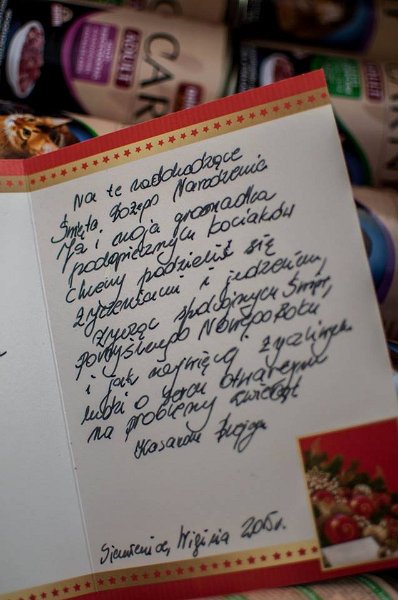 CAR
ADULT
CARN
ADULT
Na te nadchodzące
Święta Bożego Narodzenia
Ja i moja gromadka
podopiecznych kociaków
chcemy podzielić się
życzeniami i jedzeniem,
życząc spokojnych Świąt,
pomyślnego Nowego Roku
i jak najwięcej życzliwych
ludzi o sercu otwartym
na problemy zwierząt
Siemienice, Wigilia 2015r.